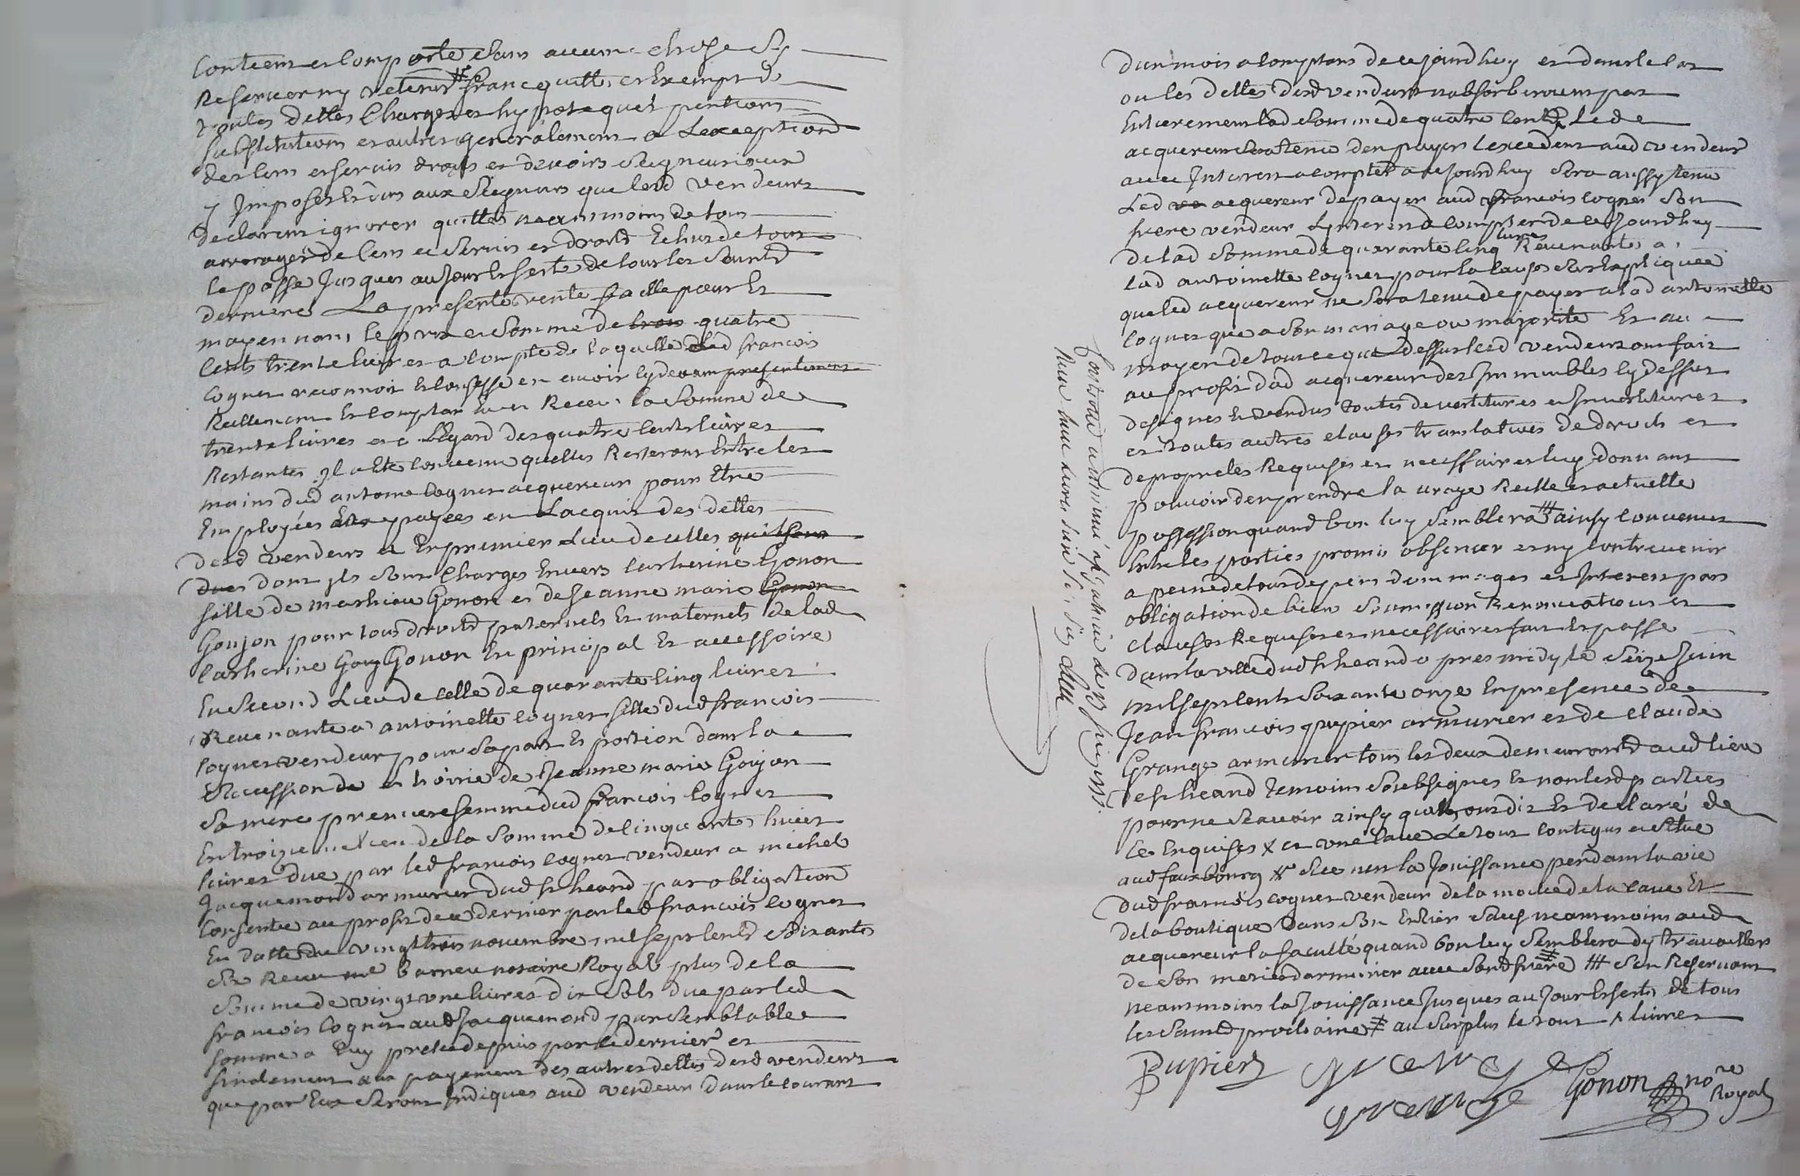 Contient et comporte sans aucune chose s'y
Reserver ny retenir # franc quitte et Exempt de
toutes dettes Charges et hypoteques pentions
substitutions et autres generalement a Lexception
des cens et servis droits et devoirs seigneuriaux
y Imposés Et dus aux seigneurs que lesd vendeurs
declarent ignorer quittes neanmoins de tous
arrerages de cens et servis et droits Echus de tout
le passé Jusques au Jour Et feste de tous les saints
derniere La presente vente faitte pour Et
moyennant le prix et somme de trois quatre
Cents trente livres a compte de laquelle led francois
Cognet reconnoit Et confesse en avoir cy devant presentement
Reellement Et comptant Eu et Receu la somme de
trente livres et a L'Egard des quatre cents livres
Restantes Il a Eté convenu quelles Resteront Entre les
mains dud antoine Cognet acquereur pour Etre
Employées Et payées en Lacquit des dettes
desd vendeurs et En premier Lieu de celles qui sont
dues dont ils sont Charges Envers Catherine Gonon
fille de mathieu Gonon et de Jeanne marie Gonon
Goujon pour tous droits paternels Et maternels de lad
Catherine Gouj Gonon En principal Et accessoire
En second Lieu de celle de quarante cinq livres
Revenante a antoinette Cognet fille dud francois
Cognet vendeur pour sa part Et portion dans la
succession de et hoirie de Jeanne marie Goujon
sa mere premiere femme dud francois Cognet
En troisieme Lieu de la somme de cinquante huit
livres due par led francois Cognet vendeur a michel
Jacquemond armurier dud st heand par obligation
Consentie au profit de ce dernier par led francois Cognet
En datte du vingt trois novembre mil sept cents soixante
six Receu me Barneu notaire Royal plus de la
somme de vingt une livres dix sols due par led
francois Cognet aud Jacquemond par semblable
somme a luy pretée depuis par ce dernier et
finalement au payement des autres dettes desd vendeurs
que par Eux seront Indiqués aud vendeur dans le courant
d'un mois a comptant de ce jourd'huy et dans le cas
ou les dettes desd vendeurs n'absorberoient pas
Entierement lad somme de quatre Cents # Led
acquereur sera tenu d'en payer Lexcedent aud vendeur
avec Interest a compter d'aujourd'huy sera aussy tenu
Led ve acquereur de payer aud francois Cognet son
frere vendeur L'interest a compter de ce jourd'huy
de lad somme de quarante cinq livres Revenante a
lad antoinette Cognet pour la cause sus Expliquée
que led acquereur ne sera tenu de payer a lad antoinette
Cognet que a son mariage ou majorité Et au
moyen de tout ce que dessus lesd vendeurs ont fait
au profit dud acquereur des Immeubles cy dessus
designés Et vendus toutes devestitures et Investitures
et toutes autres clauses translatives de droits et
de proprietés Requises et necessaires luy donnant
pouvoir d'en prendre la vraye Reelle et actuelle
possession quand bon luy semblera ### ainsy convenu
Entre les parties promis observer et ny contrevenir
a peine de tous depens dommages et Interest par
obligation de biens soumission Renonciations et
clauses Requises et necessaires fait Et passé
dans la ville dud st heand apres midy le seize Juin
mil sept cents soixante onze En presence de
Jean francois pupier armurier et de claude
Grange armurier tous les deux demeurants aud lieu
de st heand temoins soubsignés Et non lesd parties
pour ne scavoir ainsy quils ont dit Et declaré de
Ce Enquises X et une cave Le tout contigus et situé
aud fauxbourg # sec
dud francois Cognet vendeur de la moitié de la cave Et
de la boutique dans son Entier sauf neanmoins aud
acquereur la faculté quand bon luy semblera d'y travailler
de son metier d'armurier avec sond frere ### s'en Reservant
neanmoins la Jouissance Jusques au Jour Et feste de tous
les saints prochaine # au surplus le tout
Pupier Grange Gonon nore
Grange Royal
Controlé a
Receu